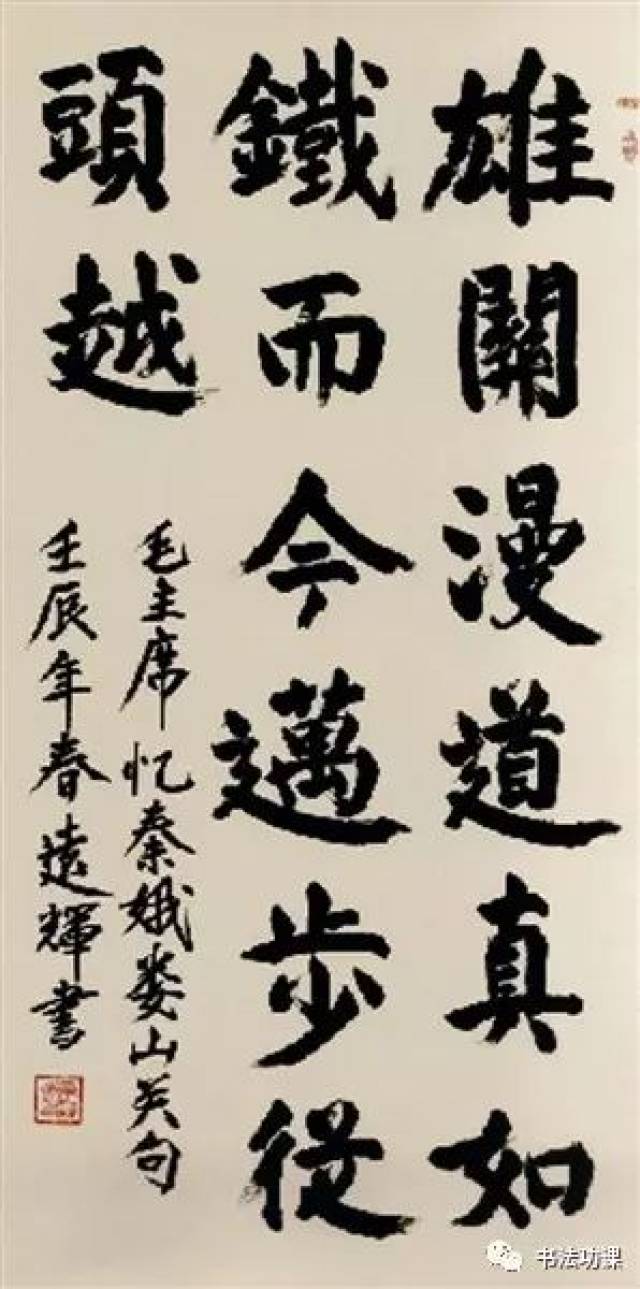 雄關漫道真如
鐵而今邁步從
頭越
毛主席忆秦娥娄山关句
壬辰年春遠輝書
书法功课